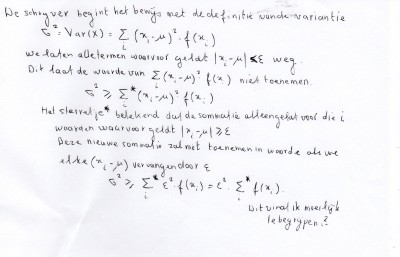 De schryver begint het bewijs met de definitie van de variantie
σ² = Var(X) = Σᵢ (xᵢ-μ)² · f(xᵢ)
we laten alle termen waarvoor geldt |xᵢ-μ| ≤ ε weg.
Dit laat de waarde van Σᵢ (xᵢ-μ)² f(xᵢ) niet toenemen.
σ² ≥ Σᵢ* (xᵢ-μ)² f(xᵢ)
Het sterretje * betekend dat de sommatie alleen gebeurt voor die i
waarden waarvoor geldt |xᵢ-μ| ≥ ε
Deze nieuwe sommatie zal met toenemen in waarde als we
elke (xᵢ-μ) vervangen door ε
σ² ≥ Σᵢ* ε² · f(xᵢ) = ε² · Σᵢ* f(xᵢ).
Dit vind ik moeilijk
te begrypen.?